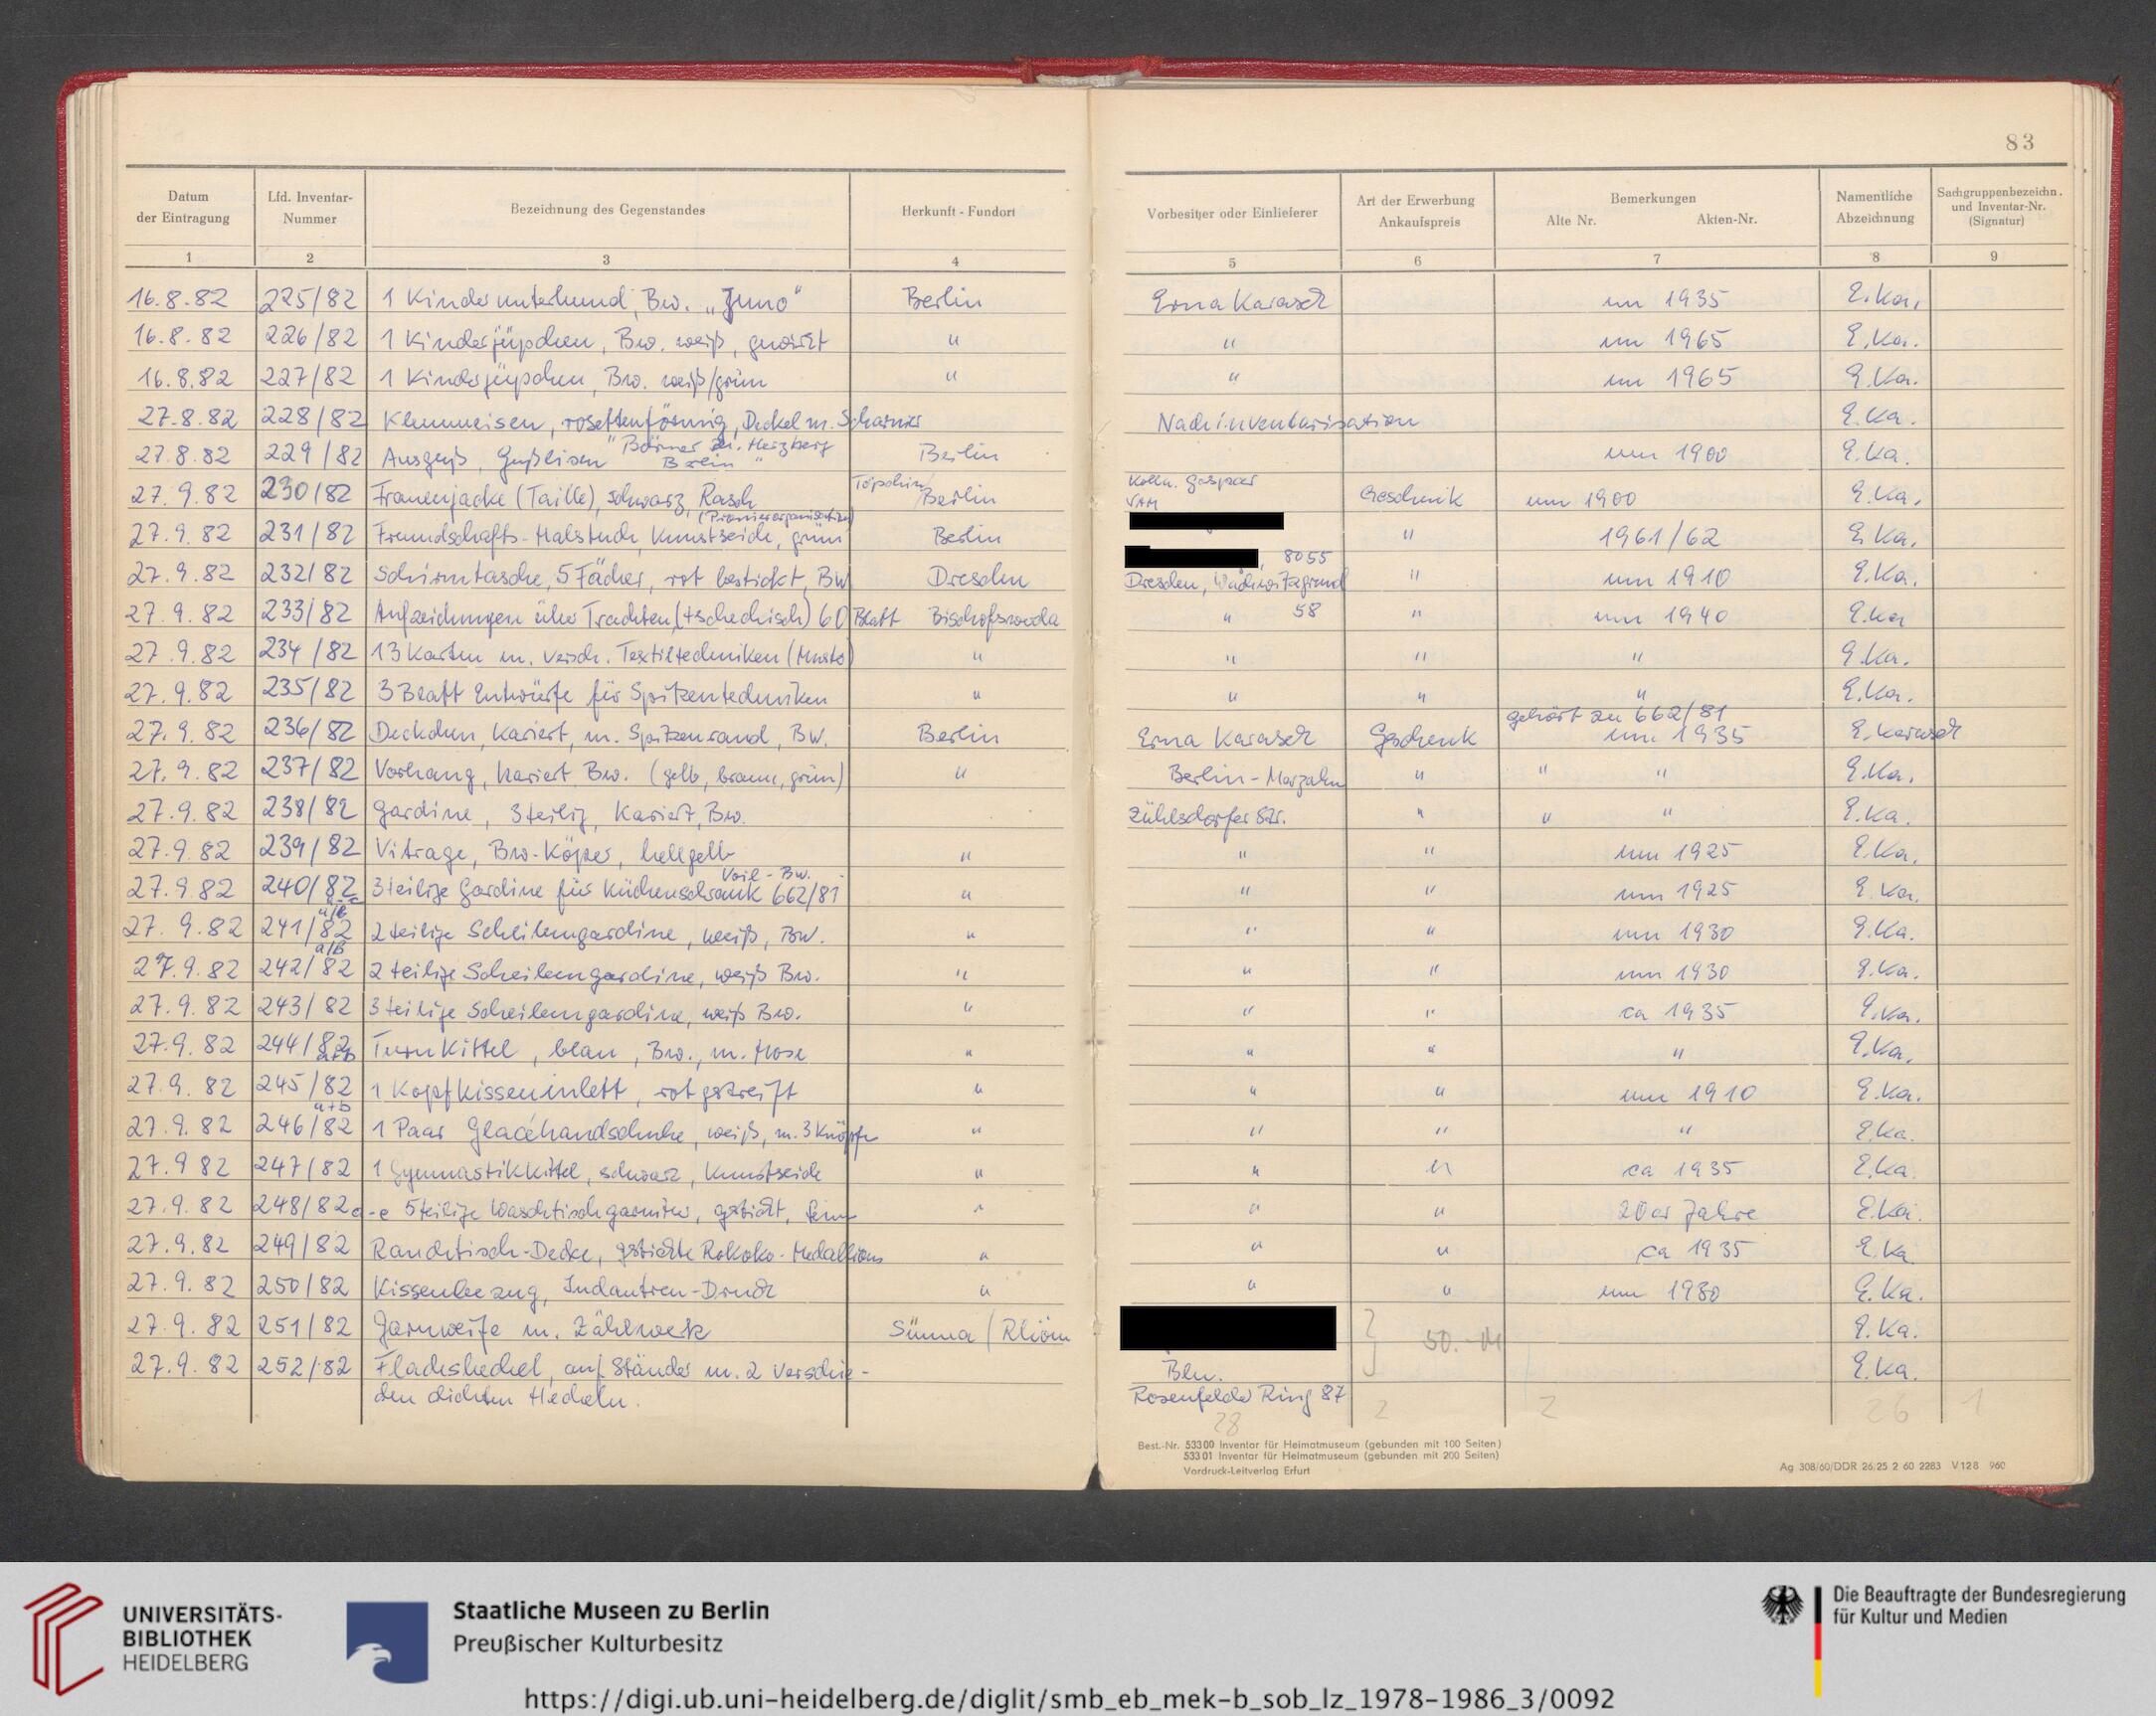 83
Datum der Eintragung | Lfd. Inventar-Nummer | Bezeichnung des Gegenstandes | Herkunft - Fundort | Vorbesitzer oder Einlieferer | Art der Erwerbung Ankaufspreis | Bemerkungen Alte Nr. Akten-Nr. | Namentliche Abzeichnung | Sachgruppenbezeichn. und Inventar-Nr. (Signatur)
1 2 3 4 5 6 7 8 9
16.8.82 225/82 1 Kinderunterhemd, Bw. „Juno“ Berlin Erna Karasek um 1935 E.Ka.
16.8.82 226/82 1 Kinderjüpchen, Bw. weiß, gewirkt " " um 1965 E.Ka.
16.8.82 227/82 1 Kinderjüpchen, Bw. weiß/grün " " um 1965 E.Ka.
27.8.82 228/82 Klemmeisen, rosettenförmig, Deckel m. Scharnier Nachinventarisation E.Ka.
27.8.82 229/82 Ausguß, Gußeisen "Börner Herzberg Berlin" Berlin um 1900 E.Ka.
27.9.82 230/82 Frauenjacke (Taille), schwarz, Rasch Töpchin/Berlin Kolln. Gaspar VAM Geschenk um 1900 E.Ka.
27.9.82 231/82 Freundschafts-Halstuch, Kunstseide, grün (Pionierorganisation) Berlin " 1961/62 E.Ka.
27.9.82 232/82 Schirmtasche, 5 Fächer, rot bestickt, Bw Dresden , 8055 Dresden, Wachwitzgrund " um 1910 E.Ka.
27.9.82 233/82 Aufzeichnungen über Trachten (tschechisch) 60 Blatt Bischofswerda " 58 " um 1940 E.Ka
27.9.82 234/82 13 Karten m. versch. Textiltechniken (Muster) " " " " E.Ka.
27.9.82 235/82 3 Blatt Entwürfe für Spitzentechniken " " " " E.Ka.
27.9.82 236/82 Deckchen, kariert, m. Spitzenrand, BW. Berlin Erna Karasek Geschenk gehört zu 662/81 um 1935 E.Karasek
27.9.82 237/82 Vorhang, kariert Bw. (gelb, braun, grün) " Berlin-Marzahn " " " E.Ka.
27.9.82 238/82 Gardine, 3teilig, Kariert, Bw. Zühlsdorfer Str. " " " E.Ka.
27.9.82 239/82 Vitrage, Bw-Köper, hellgelb " " " um 1925 E.Ka.
27.9.82 240/82 a-c 3teilige Gardine für Küchenschrank 662/81 Voil-Bw. " " " um 1925 E.Ka.
27.9.82 241/82 a/b 2teilige Scheibengardine, weiß, Bw. " " " um 1930 E.Ka.
27.9.82 242/82 a/b 2teilige Scheibengardine, weiß Bw. " " " um 1930 E.Ka.
27.9.82 243/82 3teilige Scheibengardine, weiß Bw. " " " ca 1935 E.Ka.
27.9.82 244/82 a+b Turnkittel, blau, Bw., m. Hose " " " " E.Ka.
27.9.82 245/82 1 Kopfkisseninlett, rotgestreift " " " um 1910 E.Ka.
27.9.82 246/82 a+b 1 Paar Glacéhandschuhe, weiß, m. 3 Knöpfe " " " " E.Ka.
27.9.82 247/82 1 Gymnastikkittel, schwarz, Kunstseide " " " ca 1935 E.Ka.
27.9.82 248/82 a-e 5teilige Waschtischgarnitur, gestickt, " " " 20er Jahre E.Ka.
27.9.82 249/82 Rauchtisch-Decke, gestickte Rokoko-Medallions " " " ca 1935 E.Ka
27.9.82 250/82 Kissenbezug, Indantren-Druck " " " um 1930 E.Ka.
27.9.82 251/82 Garnweife m. Zählwerk Sünna/Rhön 50.-M E.Ka.
27.9.82 252/82 Flachshechel, auf Ständer m. 2 verschie- Bln. E.Ka.
den dichten Hecheln. Rosenfelder Ring 87
28 2 2 26 1
Best.-Nr. 53300 Inventar für Heimatmuseum (gebunden mit 100 Seiten)
53301 Inventar für Heimatmuseum (gebunden mit 200 Seiten)
Vordruck-Leitverlag Erfurt
Ag 308/60/DDR 26/25 2 60 2283 V128 960
UNIVERSITÄTS-
BIBLIOTHEK
HEIDELBERG
Staatliche Museen zu Berlin
Preußischer Kulturbesitz
Die Beauftragte der Bundesregierung
für Kultur und Medien
https://digi.ub.uni-heidelberg.de/diglit/smb_eb_mek-b_sob_lz_1978-1986_3/0092